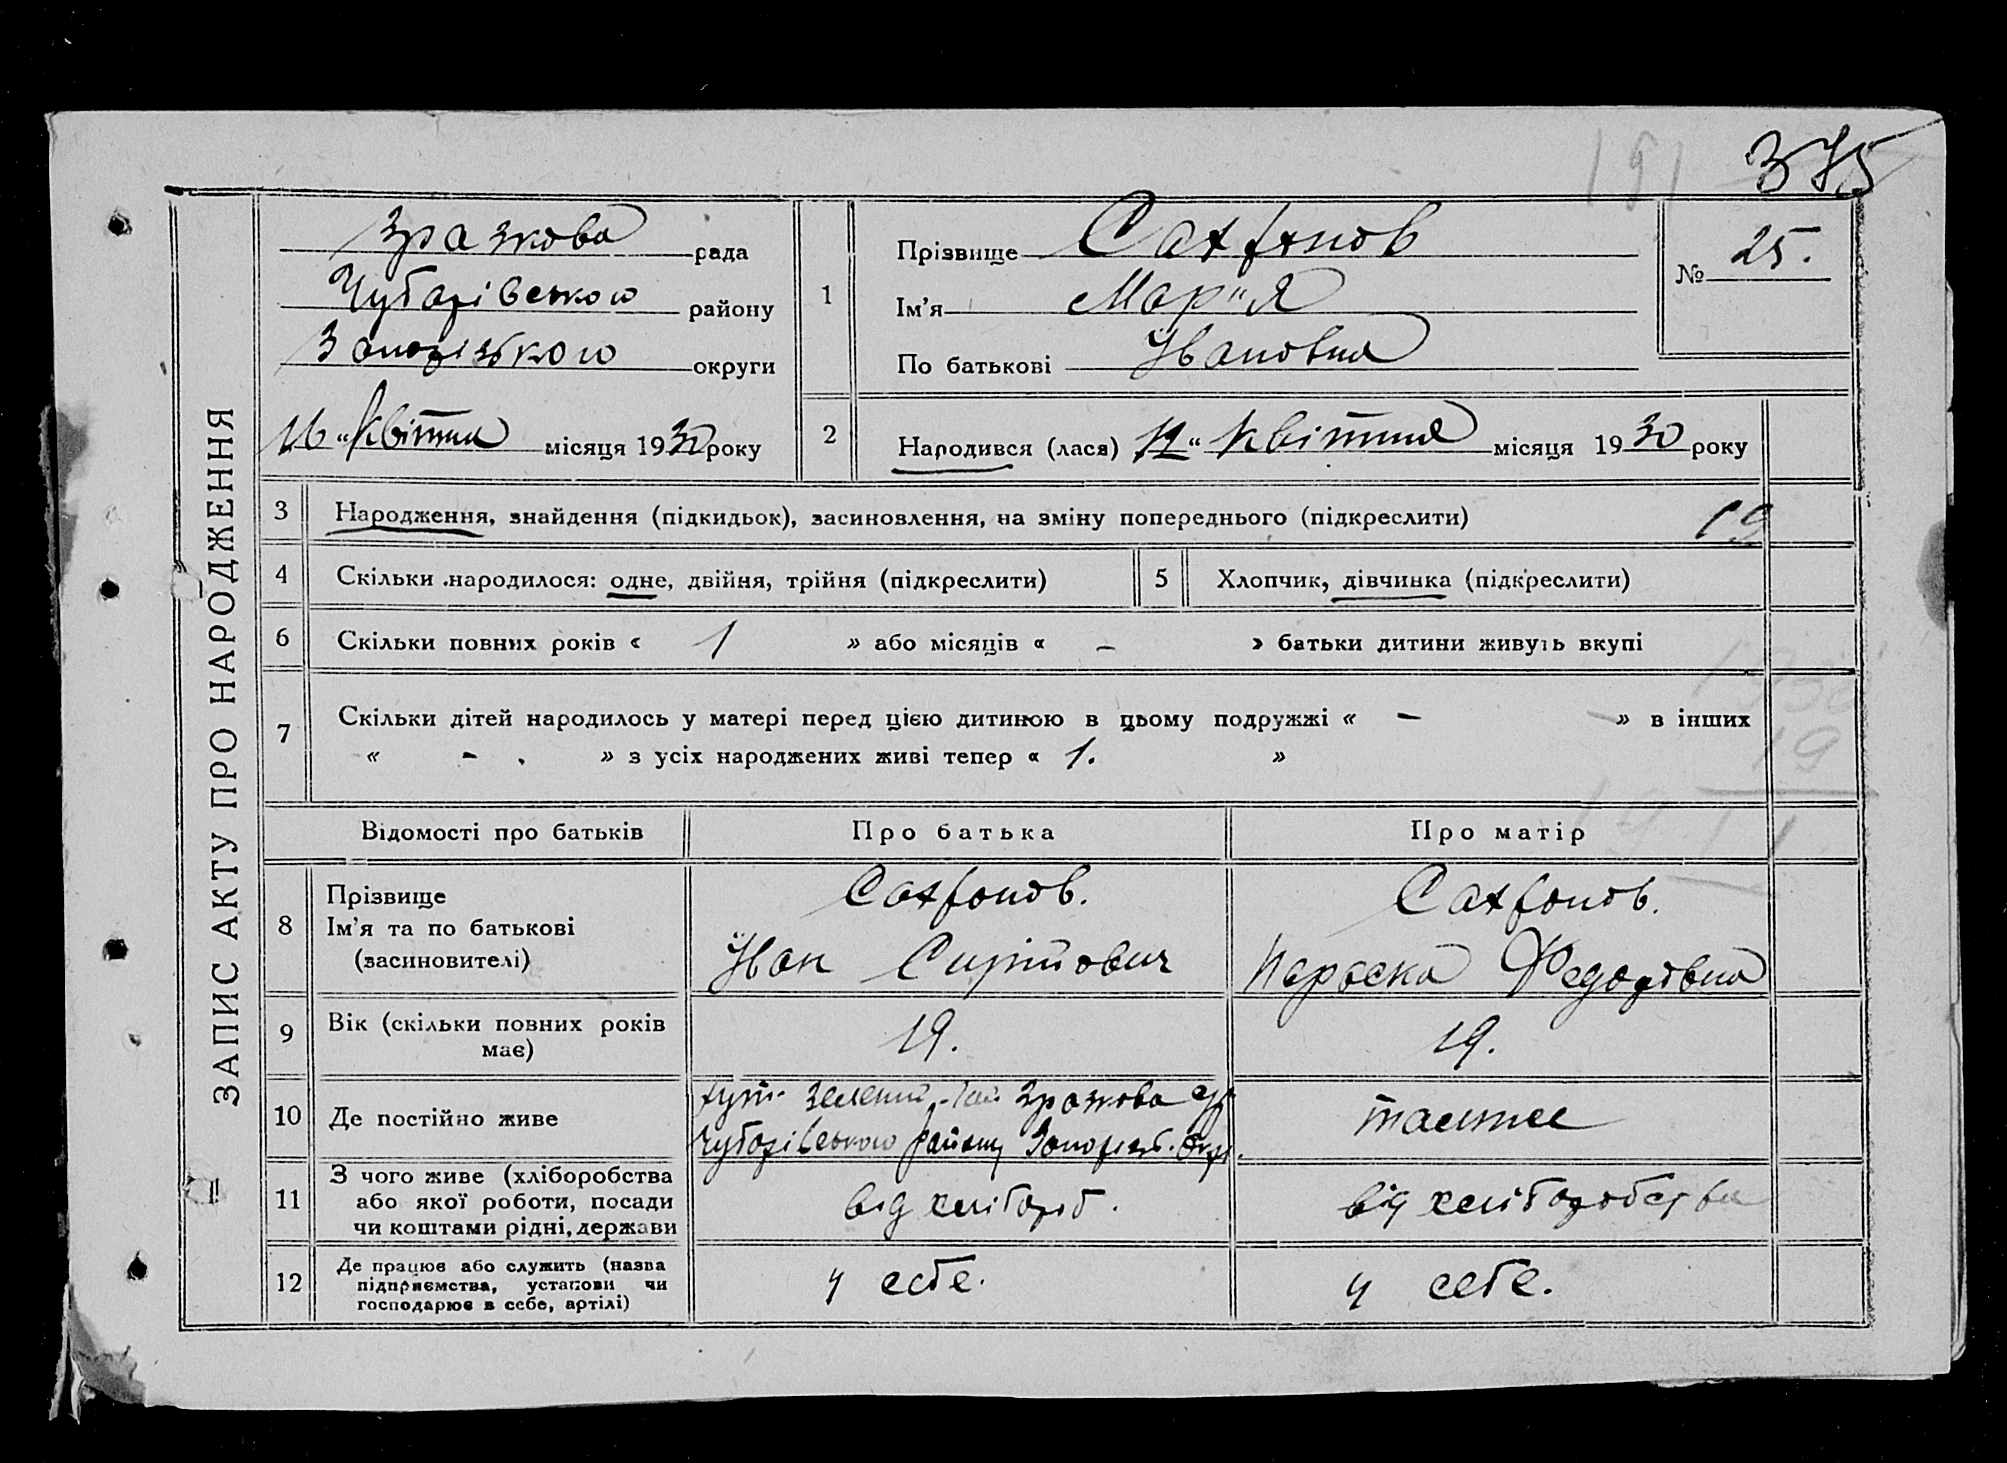 191 375
ЗАПИС АКТУ ПРО НАРОДЖЕННЯ
Зразкова рада
Чубарівського району
Запорізького округи
16 "Квітня місяця 1930 року
1
Прізвище Сахфонов
Ім'я Мар"я
По батькові Ивановна
№ 25.
2
Народився (лася) 12 " Квітня місяця 1930 року
3 Народження, знайдення (підкидьок), засиновлення, на зміну попереднього (підкреслити) 19
4 Скільки народилося: одне, двійня, трійня (підкреслити) 5 Хлопчик, дівчинка (підкреслити)
6 Скільки повних років « 1 » або місяців « – » батьки дитини живуть вкупі
7 Скільки дітей народилось у матері перед цією дитиною в цьому подружжі « – » в інших
« - . » з усіх народжених живі тепер « 1. »
1930
19
1911
Відомості про батьків Про батька Про матір
8 Прізвище Сахфонов. Сахфонов.
Ім'я та по батькові
(засиновителі) Иван Параска Федорівна
9 Вік (скільки повних років має) 19. 19.
10 Де постійно живе хут. Зелений-Гай Зразкова с/р Чубарівського району Запорізьк. Окр. також
11 З чого живе (хліборобства або якої роботи, посади чи коштами рідні, держави від хлібороб. від хліборобства
12 Де працює або служить (назва підприємства, установи чи господарює в себе, артілі) у себе. у себе.